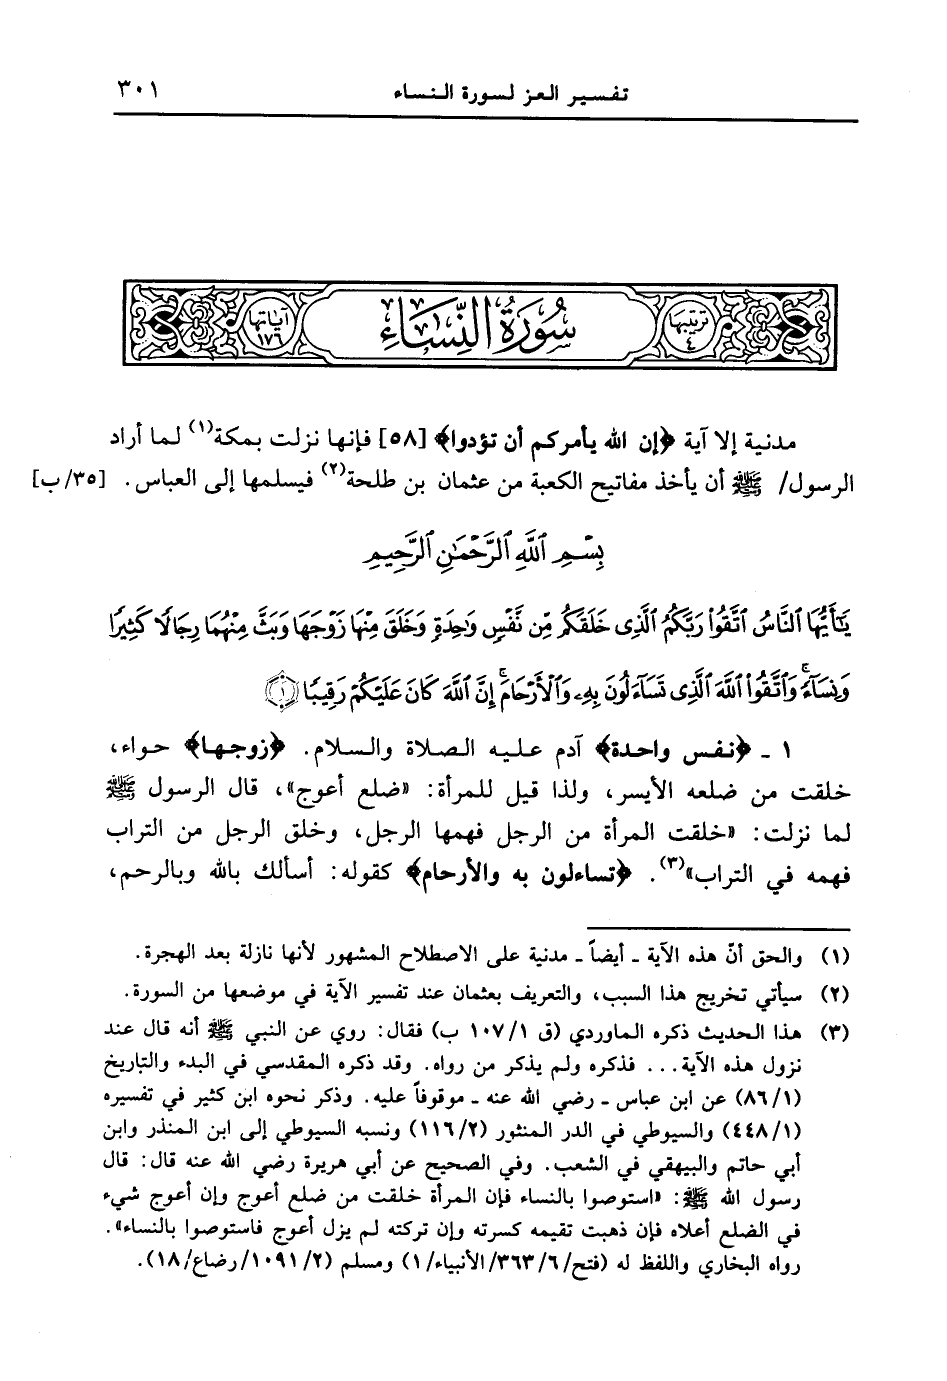 تفسير العز لسورة النساء ٣٠١
ترتيبها ٤ سُورَةُ النِّسَاءِ آياتها ١٧٦
مدنية إلا آية ﴿إن الله يأمركم أن تؤدوا﴾ [٥٨] فإنها نزلت بمكة(١) لما أراد
الرسول/ ﷺ أن يأخذ مفاتيح الكعبة من عثمان بن طلحة(٢) فيسلمها إلى العباس. [٣٥/ب]
بِسْمِ ٱللَّهِ ٱلرَّحْمَٰنِ ٱلرَّحِيمِ
يَٰٓأَيُّهَا ٱلنَّاسُ ٱتَّقُوا۟ رَبَّكُمُ ٱلَّذِى خَلَقَكُم مِّن نَّفْسٍ وَٰحِدَةٍ وَخَلَقَ مِنْهَا زَوْجَهَا وَبَثَّ مِنْهُمَا رِجَالًا كَثِيرًا
وَنِسَآءً ۚ وَٱتَّقُوا۟ ٱللَّهَ ٱلَّذِى تَسَآءَلُونَ بِهِۦ وَٱلْأَرْحَامَ ۚ إِنَّ ٱللَّهَ كَانَ عَلَيْكُمْ رَقِيبًا ﴿١﴾
١ ـ ﴿نفس واحدة﴾ آدم عليه الصلاة والسلام. ﴿زوجها﴾ حواء،
خلقت من ضلعه الأيسر، ولذا قيل للمرأة: «ضلع أعوج»، قال الرسول ﷺ
لما نزلت: «خلقت المرأة من الرجل فهمها الرجل، وخلق الرجل من التراب
فهمه في التراب»(٣). ﴿تساءلون به والأرحام﴾ كقوله: أسألك بالله وبالرحم،
(١) والحق أنّ هذه الآية ـ أيضاً ـ مدنية على الاصطلاح المشهور لأنها نازلة بعد الهجرة.
(٢) سيأتي تخريج هذا السبب، والتعريف بعثمان عند تفسير الآية في موضعها من السورة.
(٣) هذا الحديث ذكره الماوردي (ق ١٠٧/١ ب) فقال: روي عن النبي ﷺ أنه قال عند
نزول هذه الآية... فذكره ولم يذكر من رواه. وقد ذكره المقدسي في البدء والتاريخ
(٨٦/١) عن ابن عباس ـ رضي الله عنه ـ موقوفاً عليه. وذكر نحوه ابن كثير في تفسيره
(٤٤٨/١) والسيوطي في الدر المنثور (١١٦/٢) ونسبه السيوطي إلى ابن المنذر وابن
أبي حاتم والبيهقي في الشعب. وفي الصحيح عن أبي هريرة رضي الله عنه قال: قال
رسول الله ﷺ: «استوصوا بالنساء فإن المرأة خلقت من ضلع أعوج وإن أعوج شيء
في الضلع أعلاه فإن ذهبت تقيمه كسرته وإن تركته لم يزل أعوج فاستوصوا بالنساء».
رواه البخاري واللفظ له (فتح/٣٦٣/٦/الأنبياء/١) ومسلم (١٠٩١/٢/رضاع/١٨).